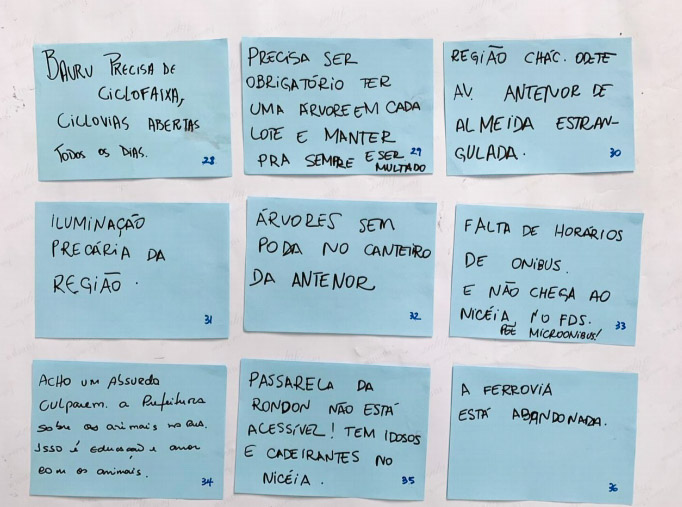 BAURU PRECISA DE
CICLOFAIXA,
CICLOVIAS ABERTAS
TODOS OS DIAS.
28
PRECISA SER
OBRIGATÓRIO TER
UMA ÁRVORE EM CADA
LOTE E MANTER
PRA SEMPRE E SER
MULTADO
29
REGIÃO CHÁC. ODETE
AV. ANTENOR DE
ALMEIDA ESTRAN-
GULADA.
30
ILUMINAÇÃO
PRECÁRIA DA
REGIÃO.
31
ÁRVORES SEM
PODA NO CANTEIRO
DA ANTENOR
32
FALTA DE HORÁRIOS
DE ONIBUS.
E NÃO CHEGA AO
NICÉIA NO FDS.
PÕE MICROONIBUS!
33
ACHO UM ABSURDO
CULPAREM a Prefeitura
sobre os animais na rua.
Isso é educação e amor
com os animais.
34
PASSARELA DA
RONDON NÃO ESTÁ
ACESSÍVEL! TEM IDOSOS
E CADEIRANTES NO
NICÉIA.
35
A FERROVIA
ESTÁ ABANDONADA.
36